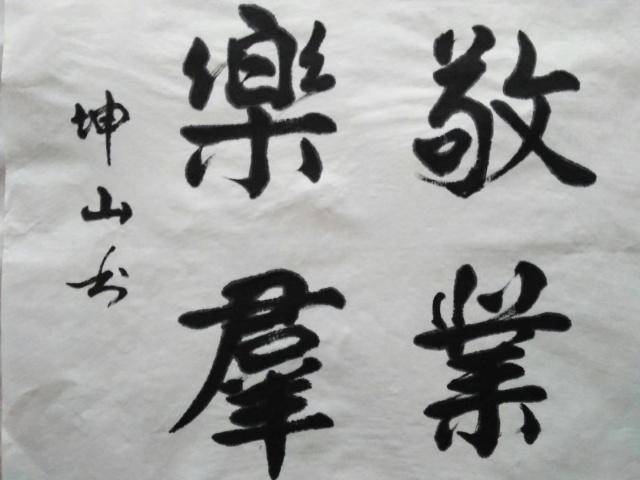 敬業
樂羣
坤山书